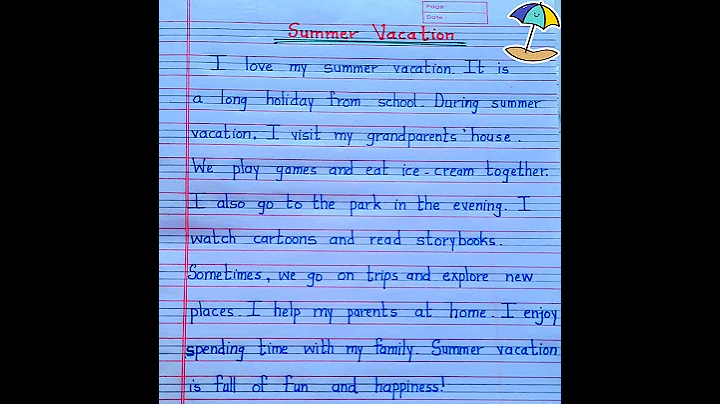 Page
Date
Summer Vacation
I love my summer vacation. It is
a long holiday from school. During summer
vacation, I visit my grandparents' house.
We play games and eat ice-cream together.
I also go to the park in the evening. I
watch cartoons and read storybooks.
Sometimes, we go on trips and explore new
places. I help my parents at home. I enjoy
spending time with my family. Summer vacation
is full of fun and happiness!